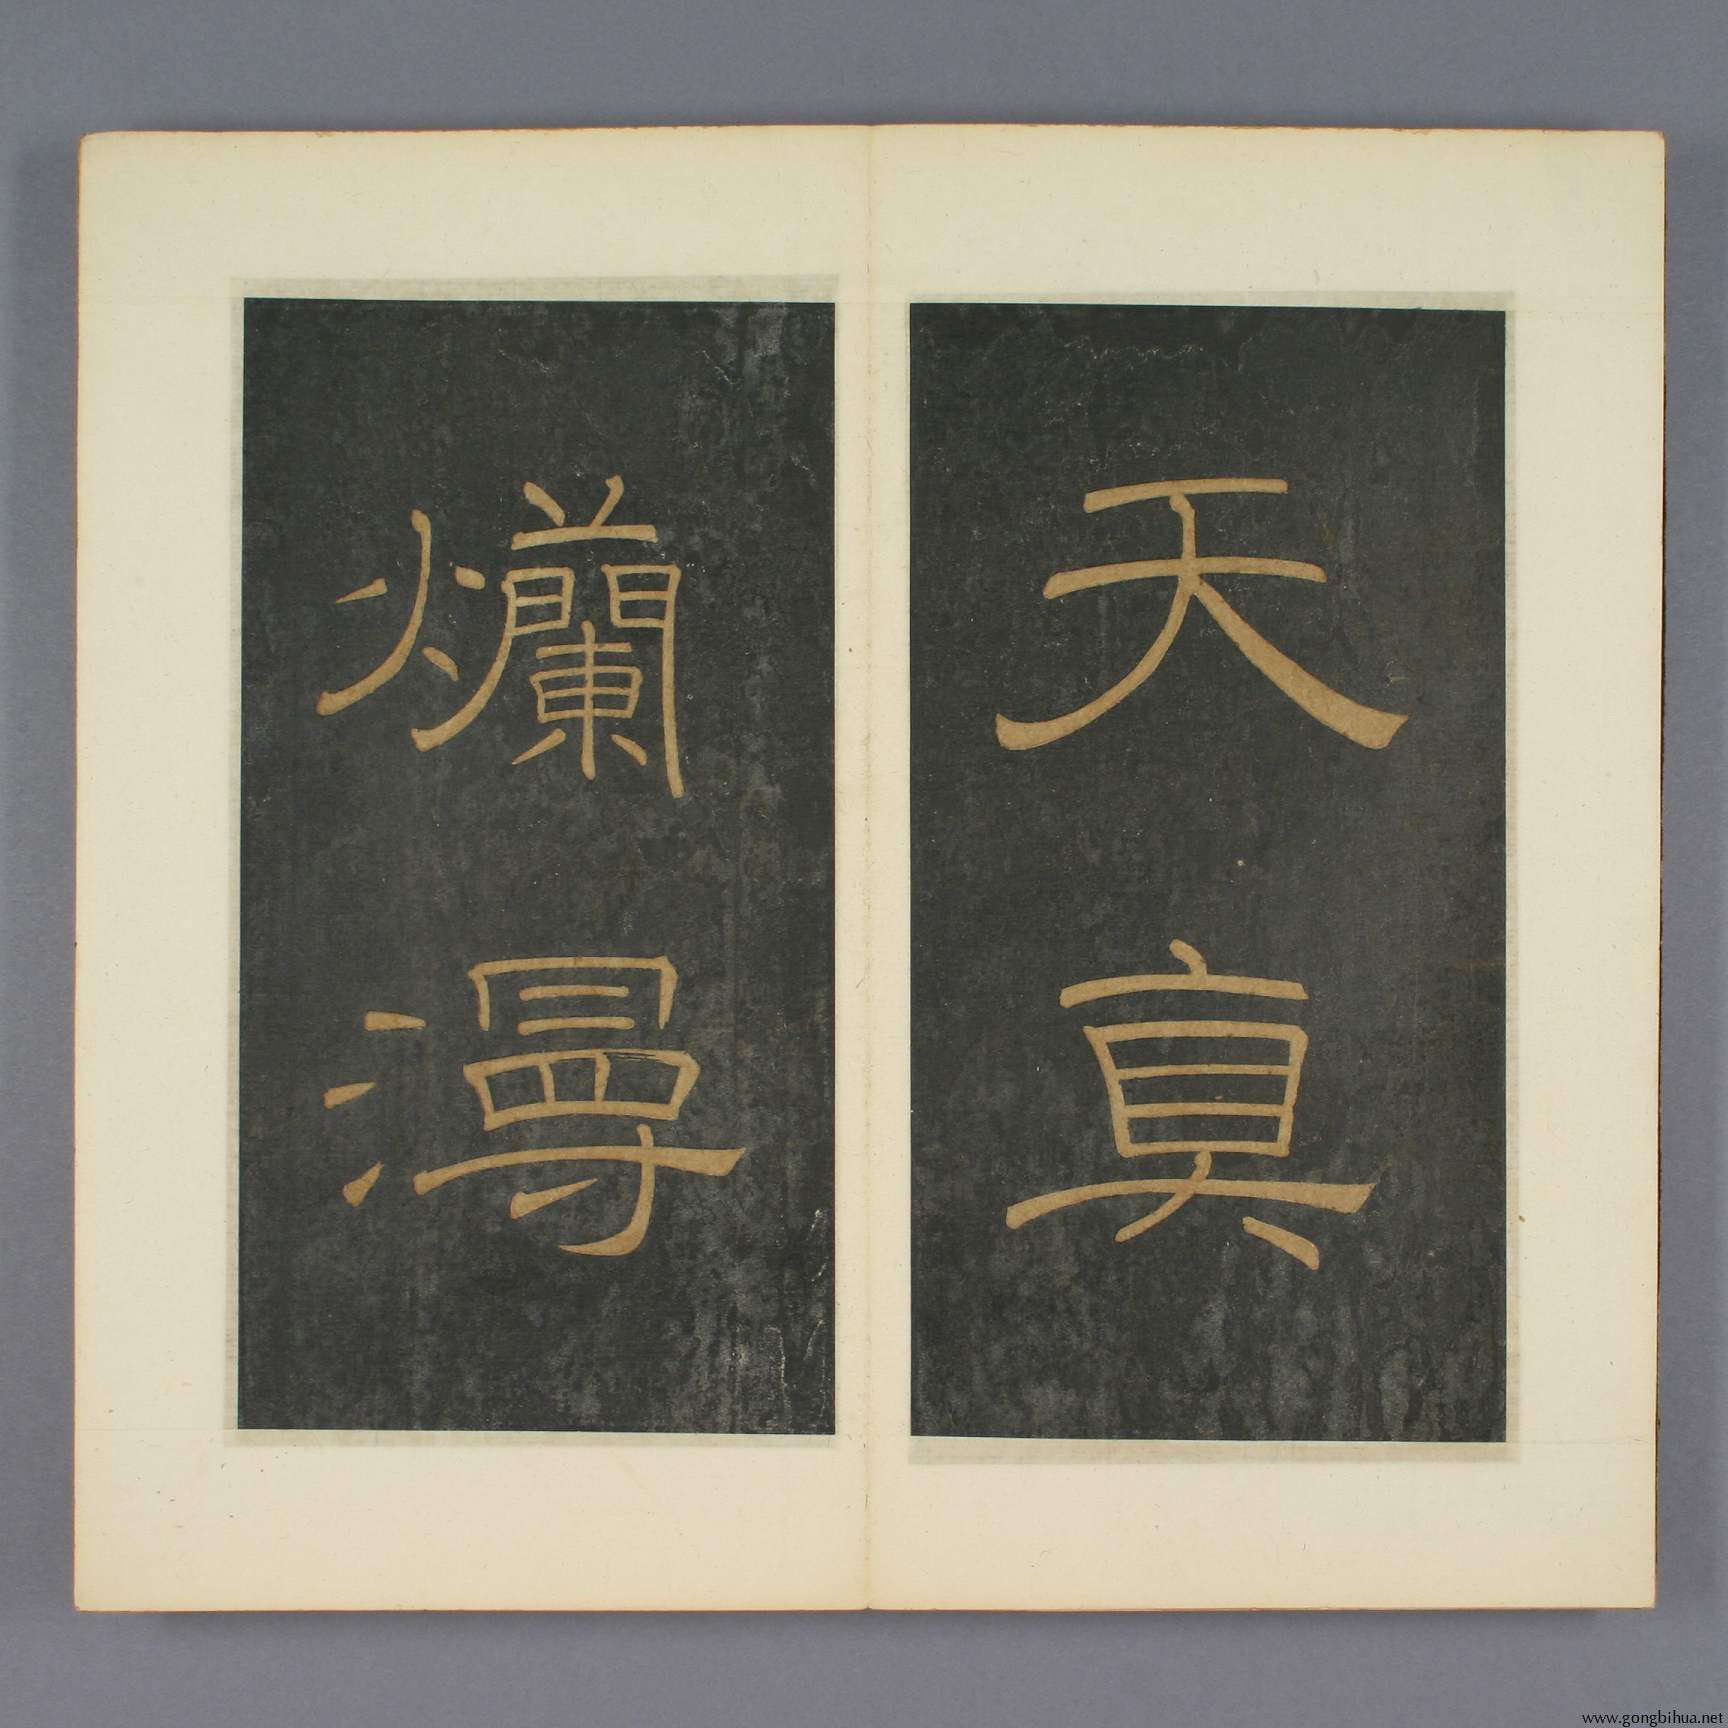 天真
爤漫
www.gongbihua.net